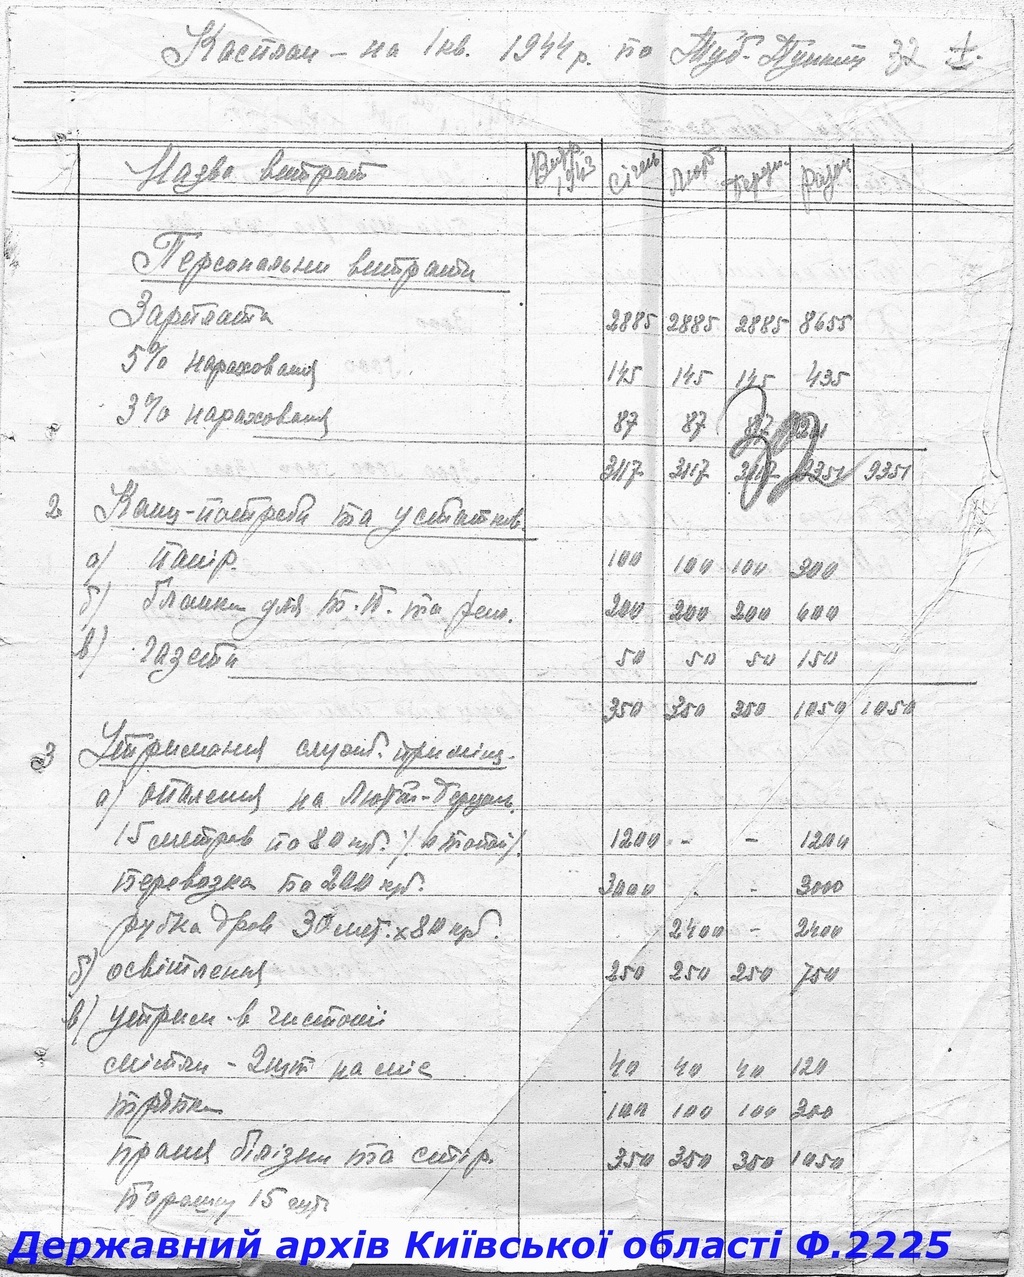 Кастпан - на І кв. 1944 р. по Туб. Пункту 32
Назва витрат Видр. 1943 Січень Лют. Березн. Разом
Персональни витрати
Зарплата 2885 2885 2885 8655
5% нараховання 145 145 145 435
3% нараховання 87 87 87 261
3117 3117 3117 9351 9351
32
2 Канц-потреби та устатков.
а) папір. 100 100 100 300
б) бланки для Т.П. та 200 200 200 600
в) газети 50 50 50 150
350 350 350 1050 1050
3 Утримання служб. приміщ.
а) опалення на Лютий-Березень
15 метров по 80 крб. 1200 - - 1200
перевозка по 200 крб. 3000 . - 3000
рубка дров 30 мет. х 80 крб. 2400 - 2400
б) освітлення 250 250 250 750
в) утрим. в чистоті
мітли - 2 шт на міс 40 40 40 120
тряпки 100 100 100 300
прання білізни та стір. 350 350 350 1050
порошку 15 шт.
Державний архів Київської області Ф.2225